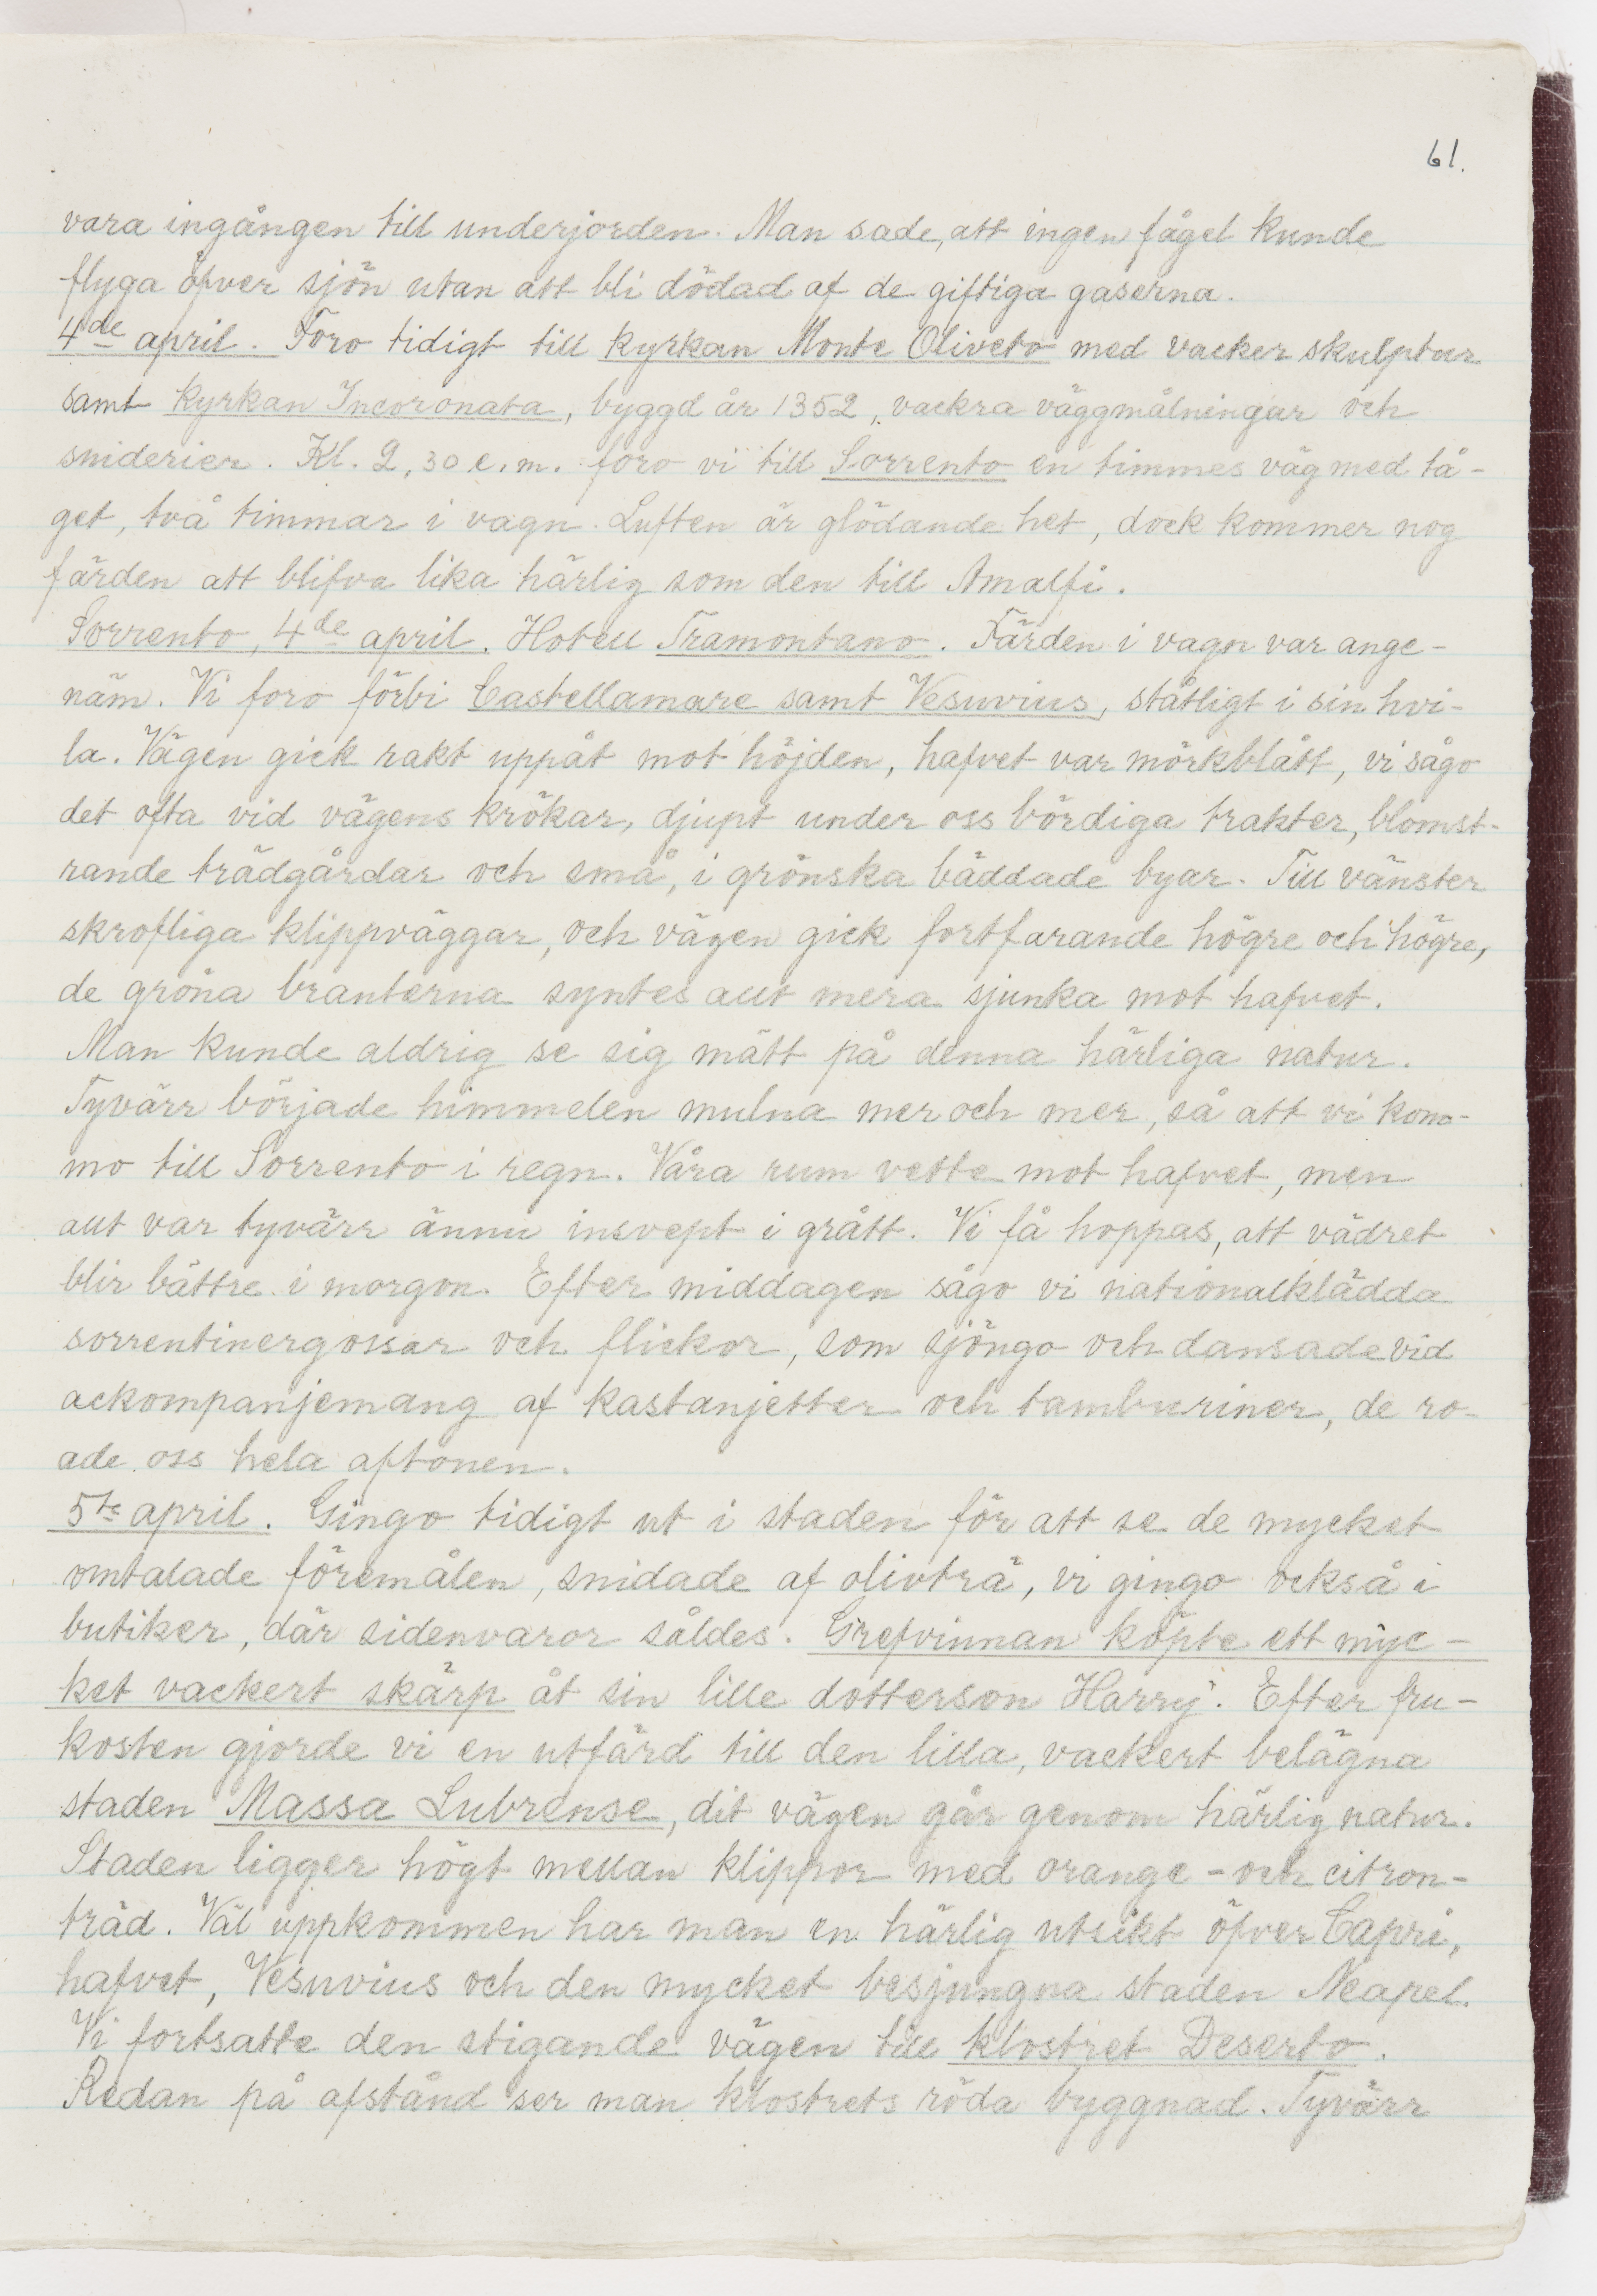 61.
vara ingången till underjorden. Man sade, att ingen fågel kunde
flyga öfver sjön utan att bli dödad af de giftiga gaserna.
4de april. Foro tidigt till kyrkan Monte Oliveto med vacker skulptur
samt kyrkan Incoronata, byggd år 1352, vackra väggmålningar och
sniderier. Kl. 2,30 e.m. foro vi till Sorrento en timmes väg med tå-
get, två timmar i vagn. Luften är glödande het, dock kommer nog
färden att blifva lika härlig som den till Amalfi.
Sorrento, 4de april. Hotell Tramontano. Färden i vagn var ange-
näm. Vi foro förbi Castellamare samt Vesuvius, ståtligt i sin hvi-
la. Vägen gick rakt uppåt mot höjden, hafvet var mörkblått, vi sågo
det ofta vid vägens krökar, djupt under oss bördiga trakter, blomst-
rande trädgårdar och små, i grönska bäddade byar. Till vänster
skrofliga klippväggar, och vägen gick fortfarande högre och högre,
de gröna branterna syntes allt mera sjunka mot hafvet.
Man kunde aldrig se sig mätt på denna härliga natur.
Tyvärr började himmelen mulna mer och mer, så att vi kom-
mo till Sorrento i regn. Våra rum vette mot hafvet, men
allt var tyvärr ännu insvept i grått. Vi få hoppas, att vädret
blir bättre i morgon. Efter middagen sågo vi nationalklädda
sorrentinergossar och flickor, som sjöngo och dansade vid
ackompanjemang af kastanjetter och tamburiner, de ro-
ade oss hela aftonen.
5te april. Gingo tidigt ut i staden för att se de mycket
omtalade föremålen, snidade af olivträ, vi gingo också i
butiker, där sidenvaror såldes. Grefvinnan köpte ett myc-
ket vackert skärp åt sin lille dotterson Harry. Efter fru-
kosten gjorde vi en utfärd till den lilla, vackert belägna
staden Massa Lubrense, dit vägen går genom härlig natur.
Staden ligger högt mellan klippor med orange- och citron-
träd. Väl uppkommen har man en härlig utsikt öfver Capri,
hafvet, Vesuvius och den mycket besjungna staden Neapel.
Vi fortsatte den stigande vägen till klostret Deserto.
Redan på afstånd ser man klostrets röda byggnad. Tyvärr